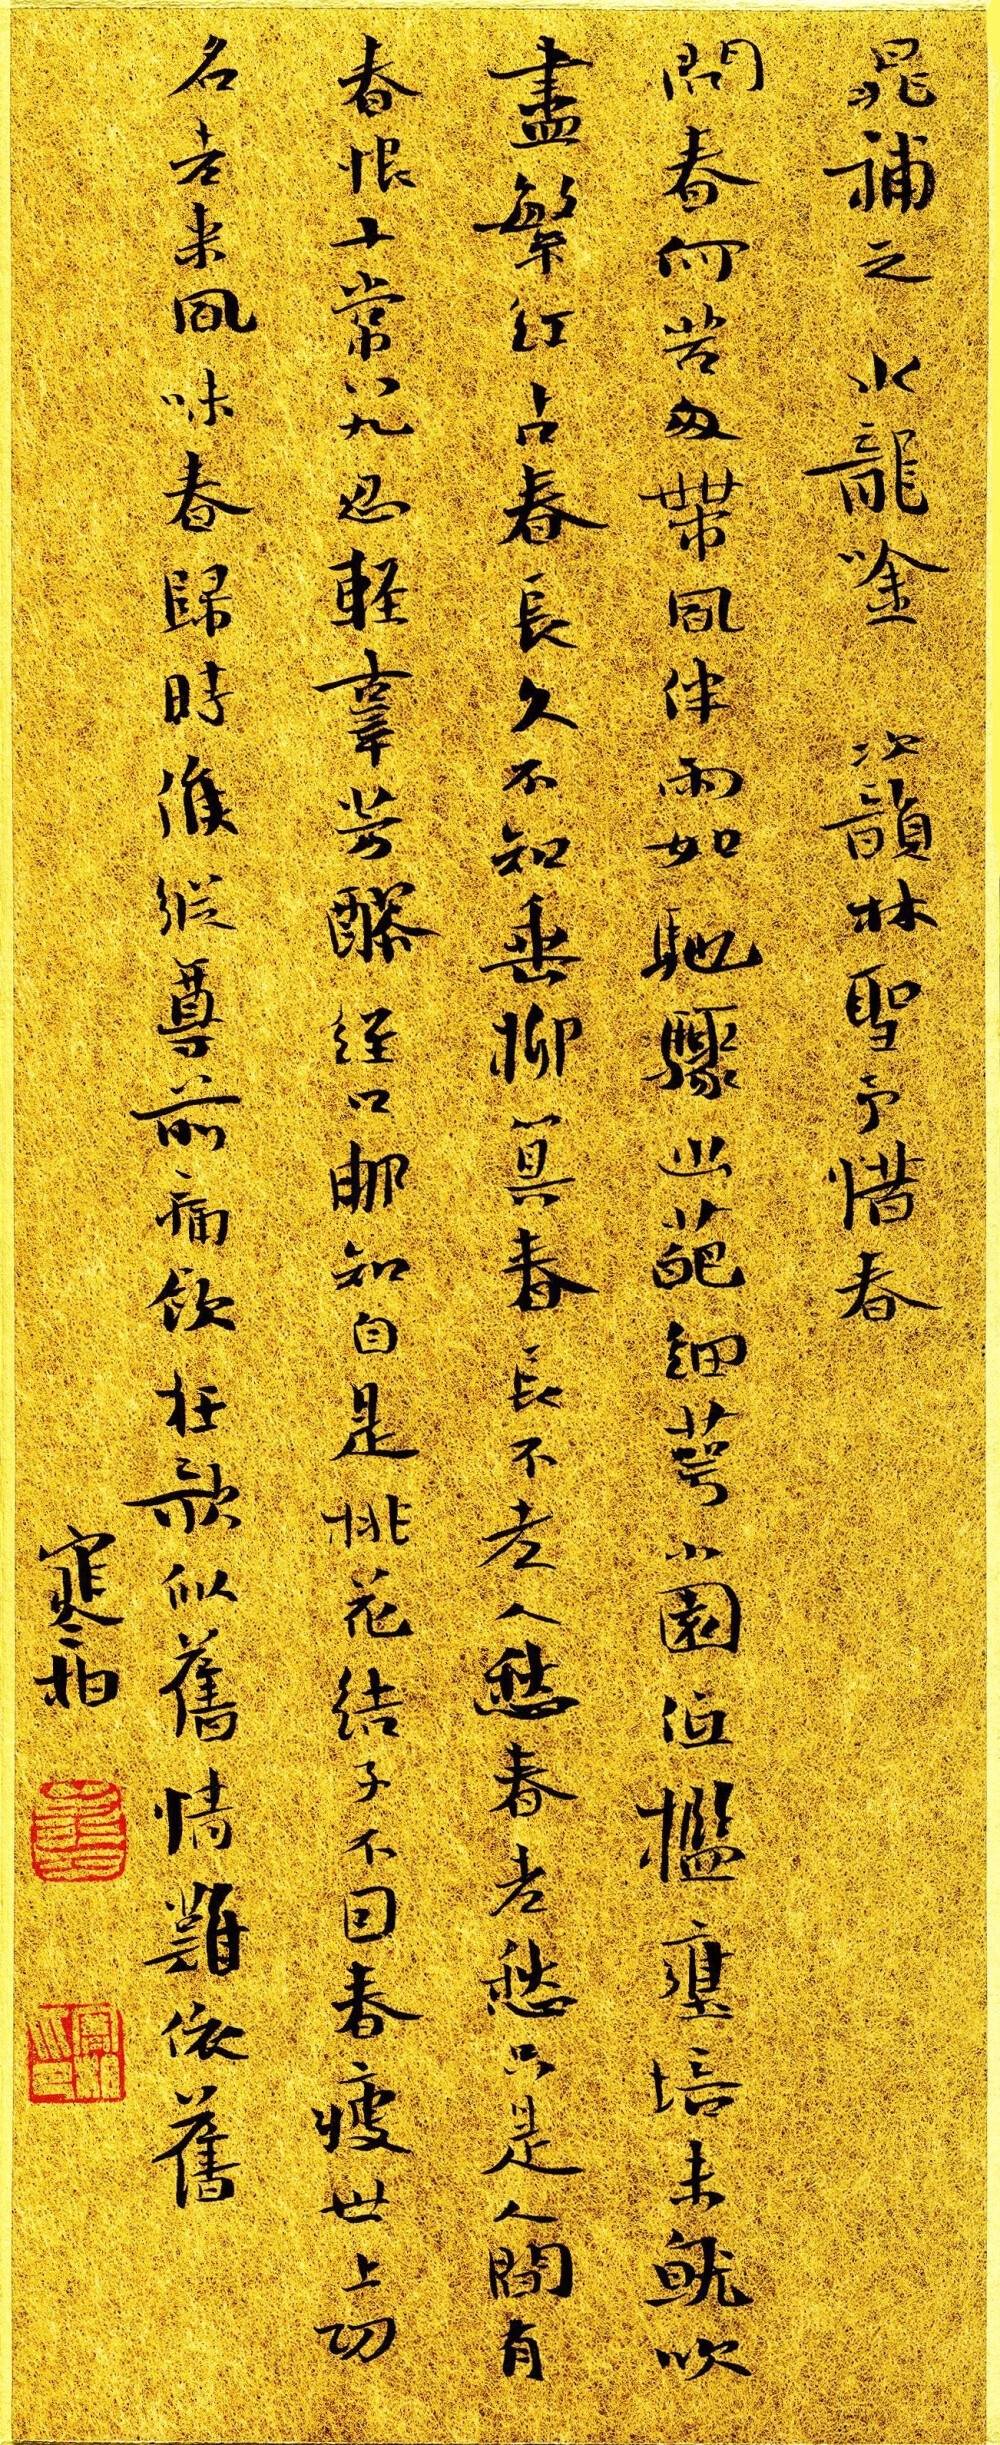 晁補之 水龍吟 次韻林聖予惜春
問春何苦匆匆帶風伴雨如馳驟幽葩細萼小園低檻壅培未就吹
盡繁紅占春長久不知垂柳算春長不老人愁春老愁只是人間有
春恨十常八九忍輕辜芳醪經口那知自是桃花結子不因春瘦世上功
名老來風味春歸時候縱尊前痛飲狂歌似舊情難依舊
寒柏